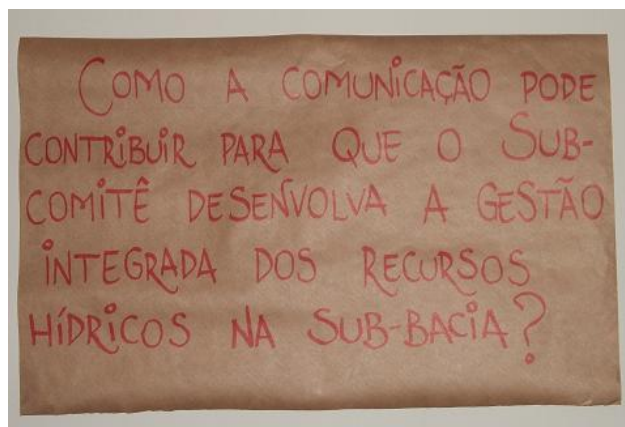 COMO A COMUNICAÇÃO PODE
CONTRIBUIR PARA QUE O SUB-
COMITÊ DESENVOLVA A GESTÃO
INTEGRADA DOS RECURSOS
HÍDRICOS NA SUB-BACIA?